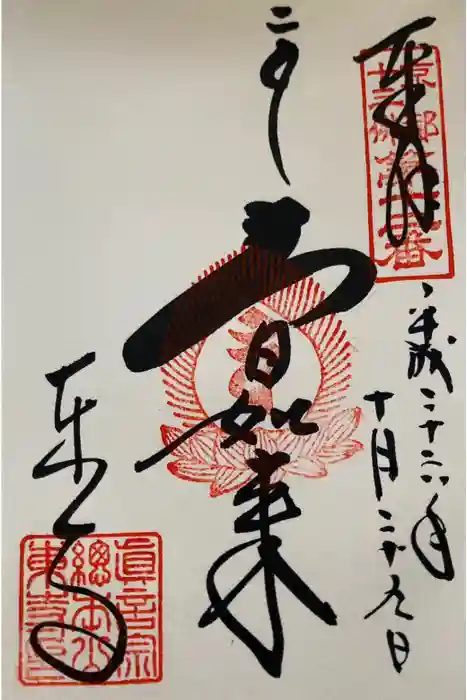 奉拝
京都
十三佛
第十二番
平成二十六年
十月二十九日
大日如来
東寺
眞言宗
總本山
東寺印